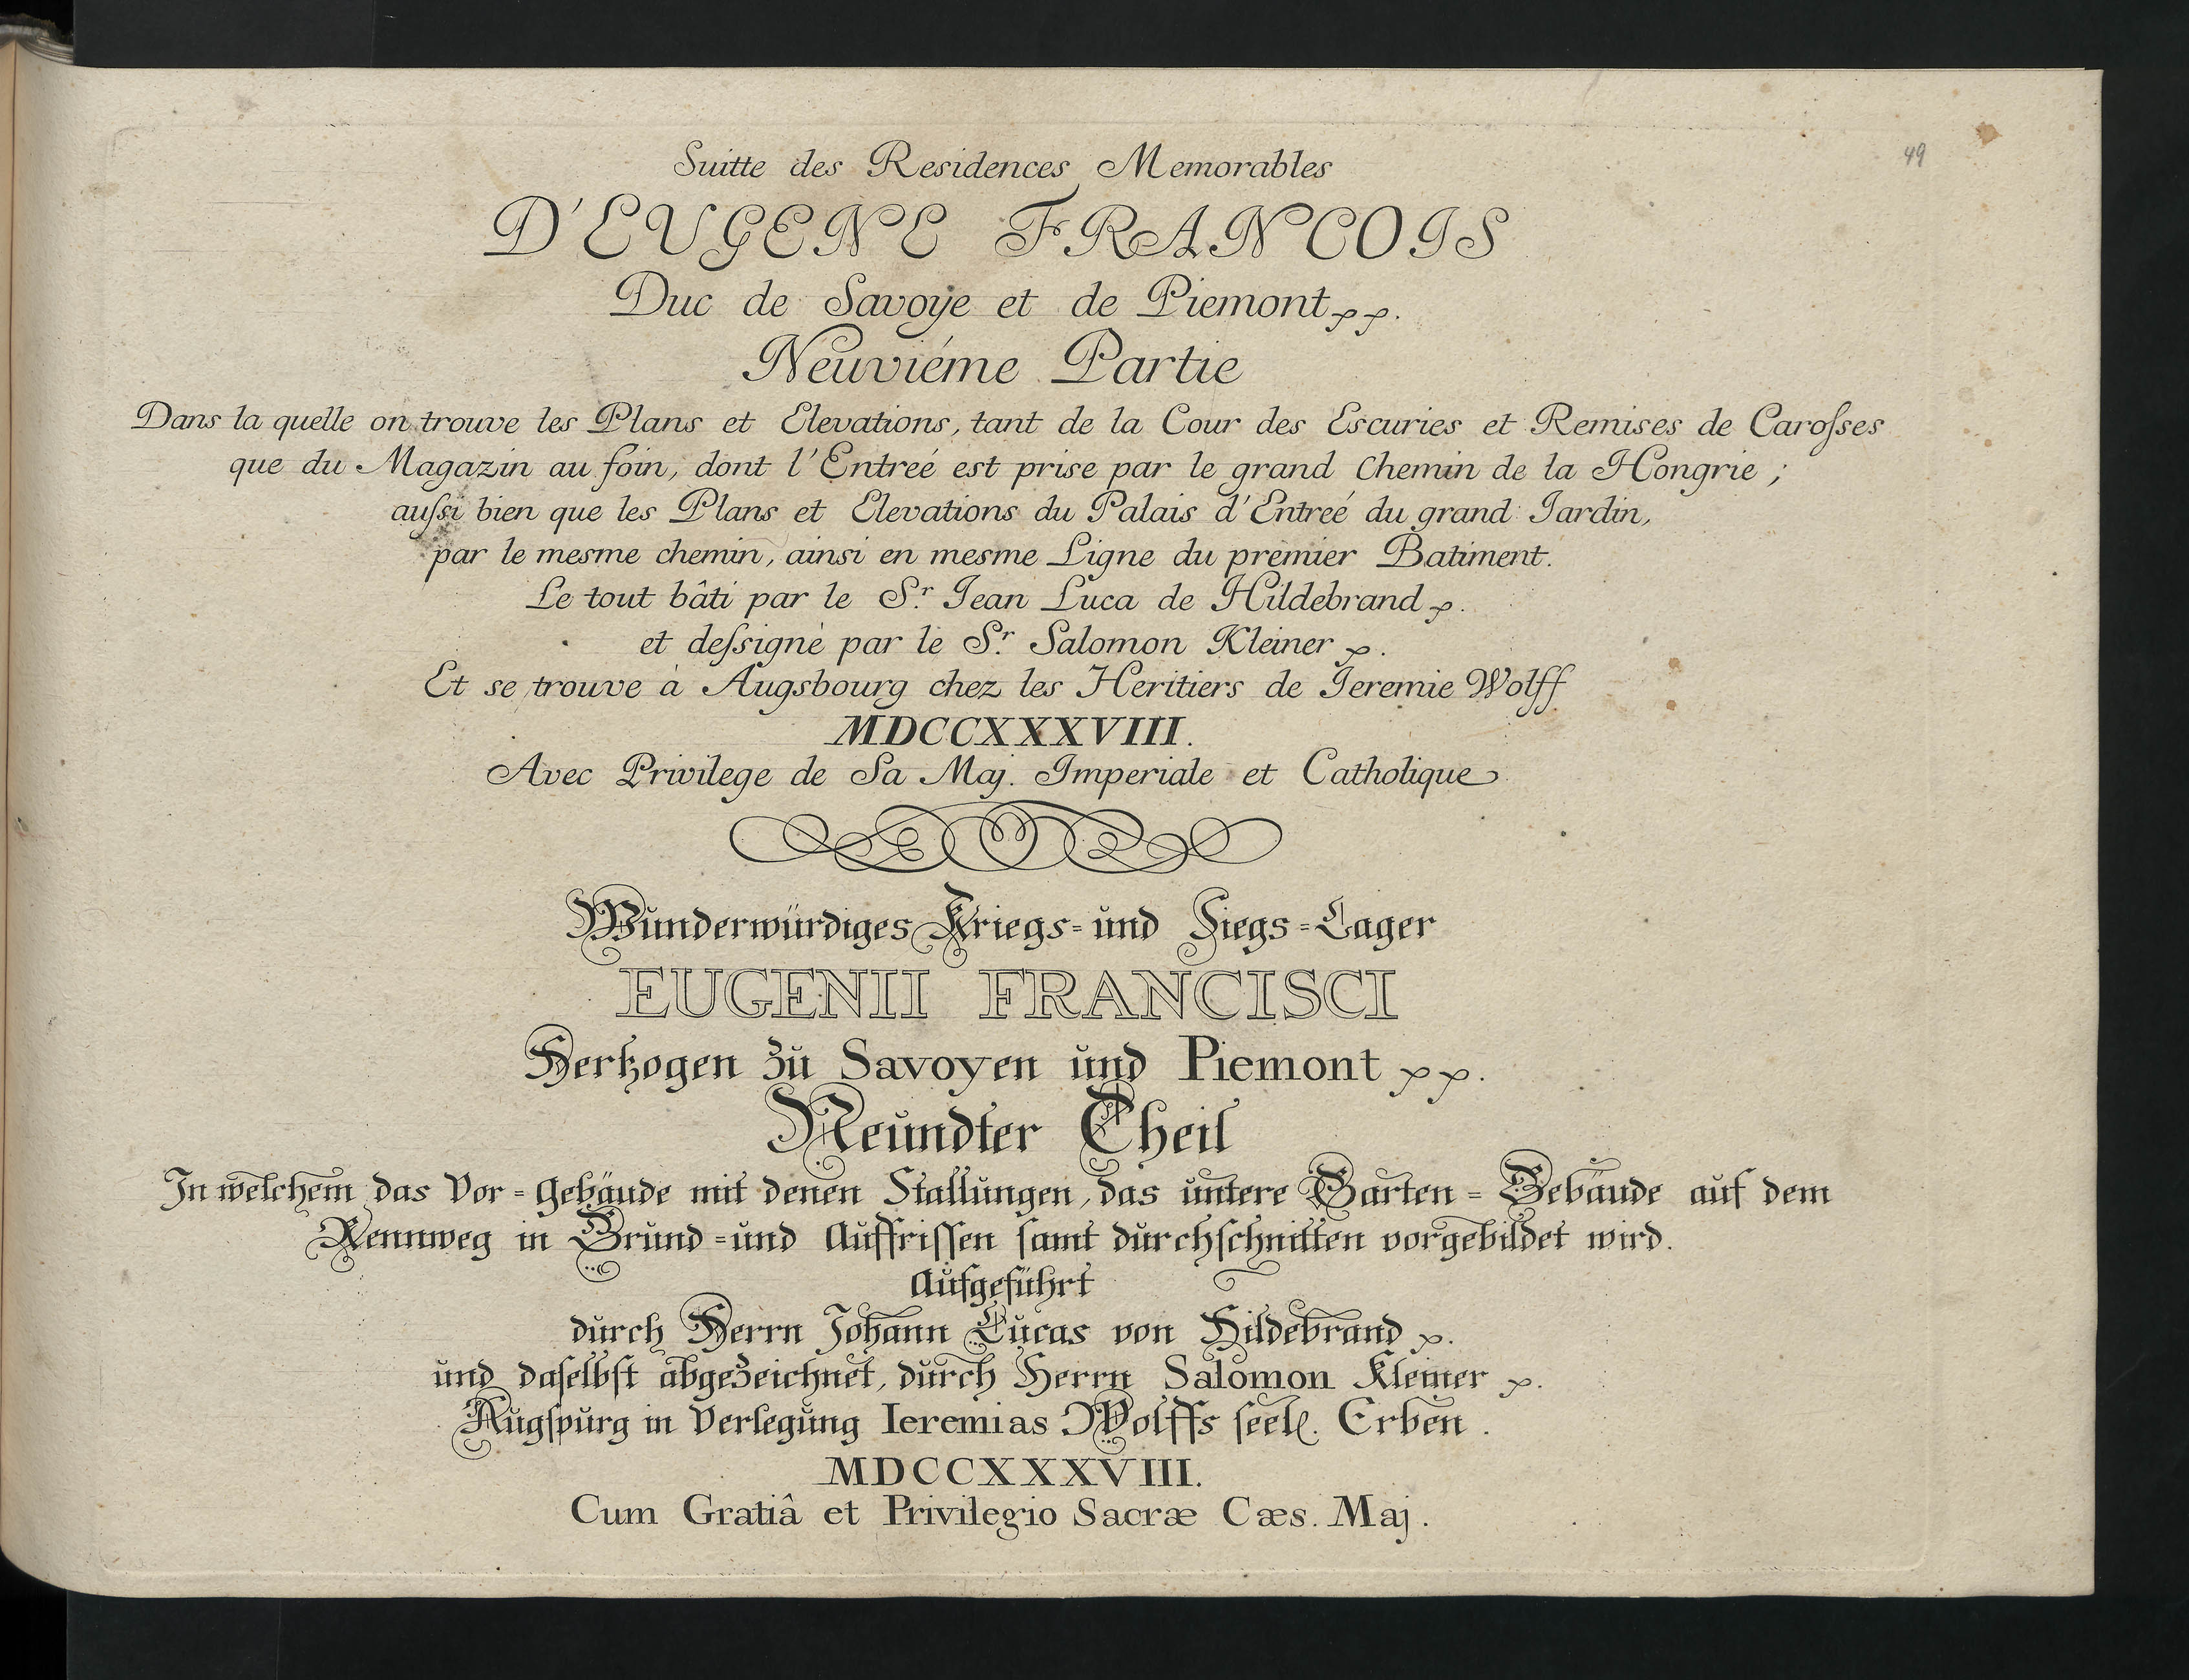 49
Suitte des Residences Memorables
D'EUGENE FRANCOIS
Duc de Savoye et de Piemont pp.
Neuviéme Partie
Dans la quelle on trouve les Plans et Elevations, tant de la Cour des Escuries et Remises de Caroſses
que du Magazin au foin, dont l'Entreé est prise par le grand Chemin de la Hongrie ;
auſsi bien que les Plans et Elevations du Palais d'Entreé du grand Jardin,
par le mesme chemin, ainsi en mesme Ligne du premier Batiment.
Le tout bâti par le S.r Jean Luca de Hildebrand p.
et deſsigné par le S.r Salomon Kleiner p.
Et se trouve à Augsbourg chez les Heritiers de Jeremie Wolff
MDCCXXXVIII.
Avec Privilege de Sa Maj. Imperiale et Catholique
Wunderwürdiges Kriegs= und Siegs=Lager
EUGENII FRANCISCI
Hertzogen zu Savoyen und Piemont pp.
Neundter Theil
In welchem das Vor=Gebäude mit denen Stallungen, das untere Garten=Gebäude auf dem
Rennweg in Grund=und Auffriſſen ſamt durchſchnitten vorgebildet wird.
Aufgeführt
durch Herrn Johann Lucas von Hildebrand p.
und daſelbſt abgezeichnet, durch Herrn Salomon Kleiner p.
Augſpurg in Verlegung Ieremias Wolffs ſeel. Erben.
MDCCXXXVIII.
Cum Gratiâ et Privilegio Sacræ Cæs. Maj.